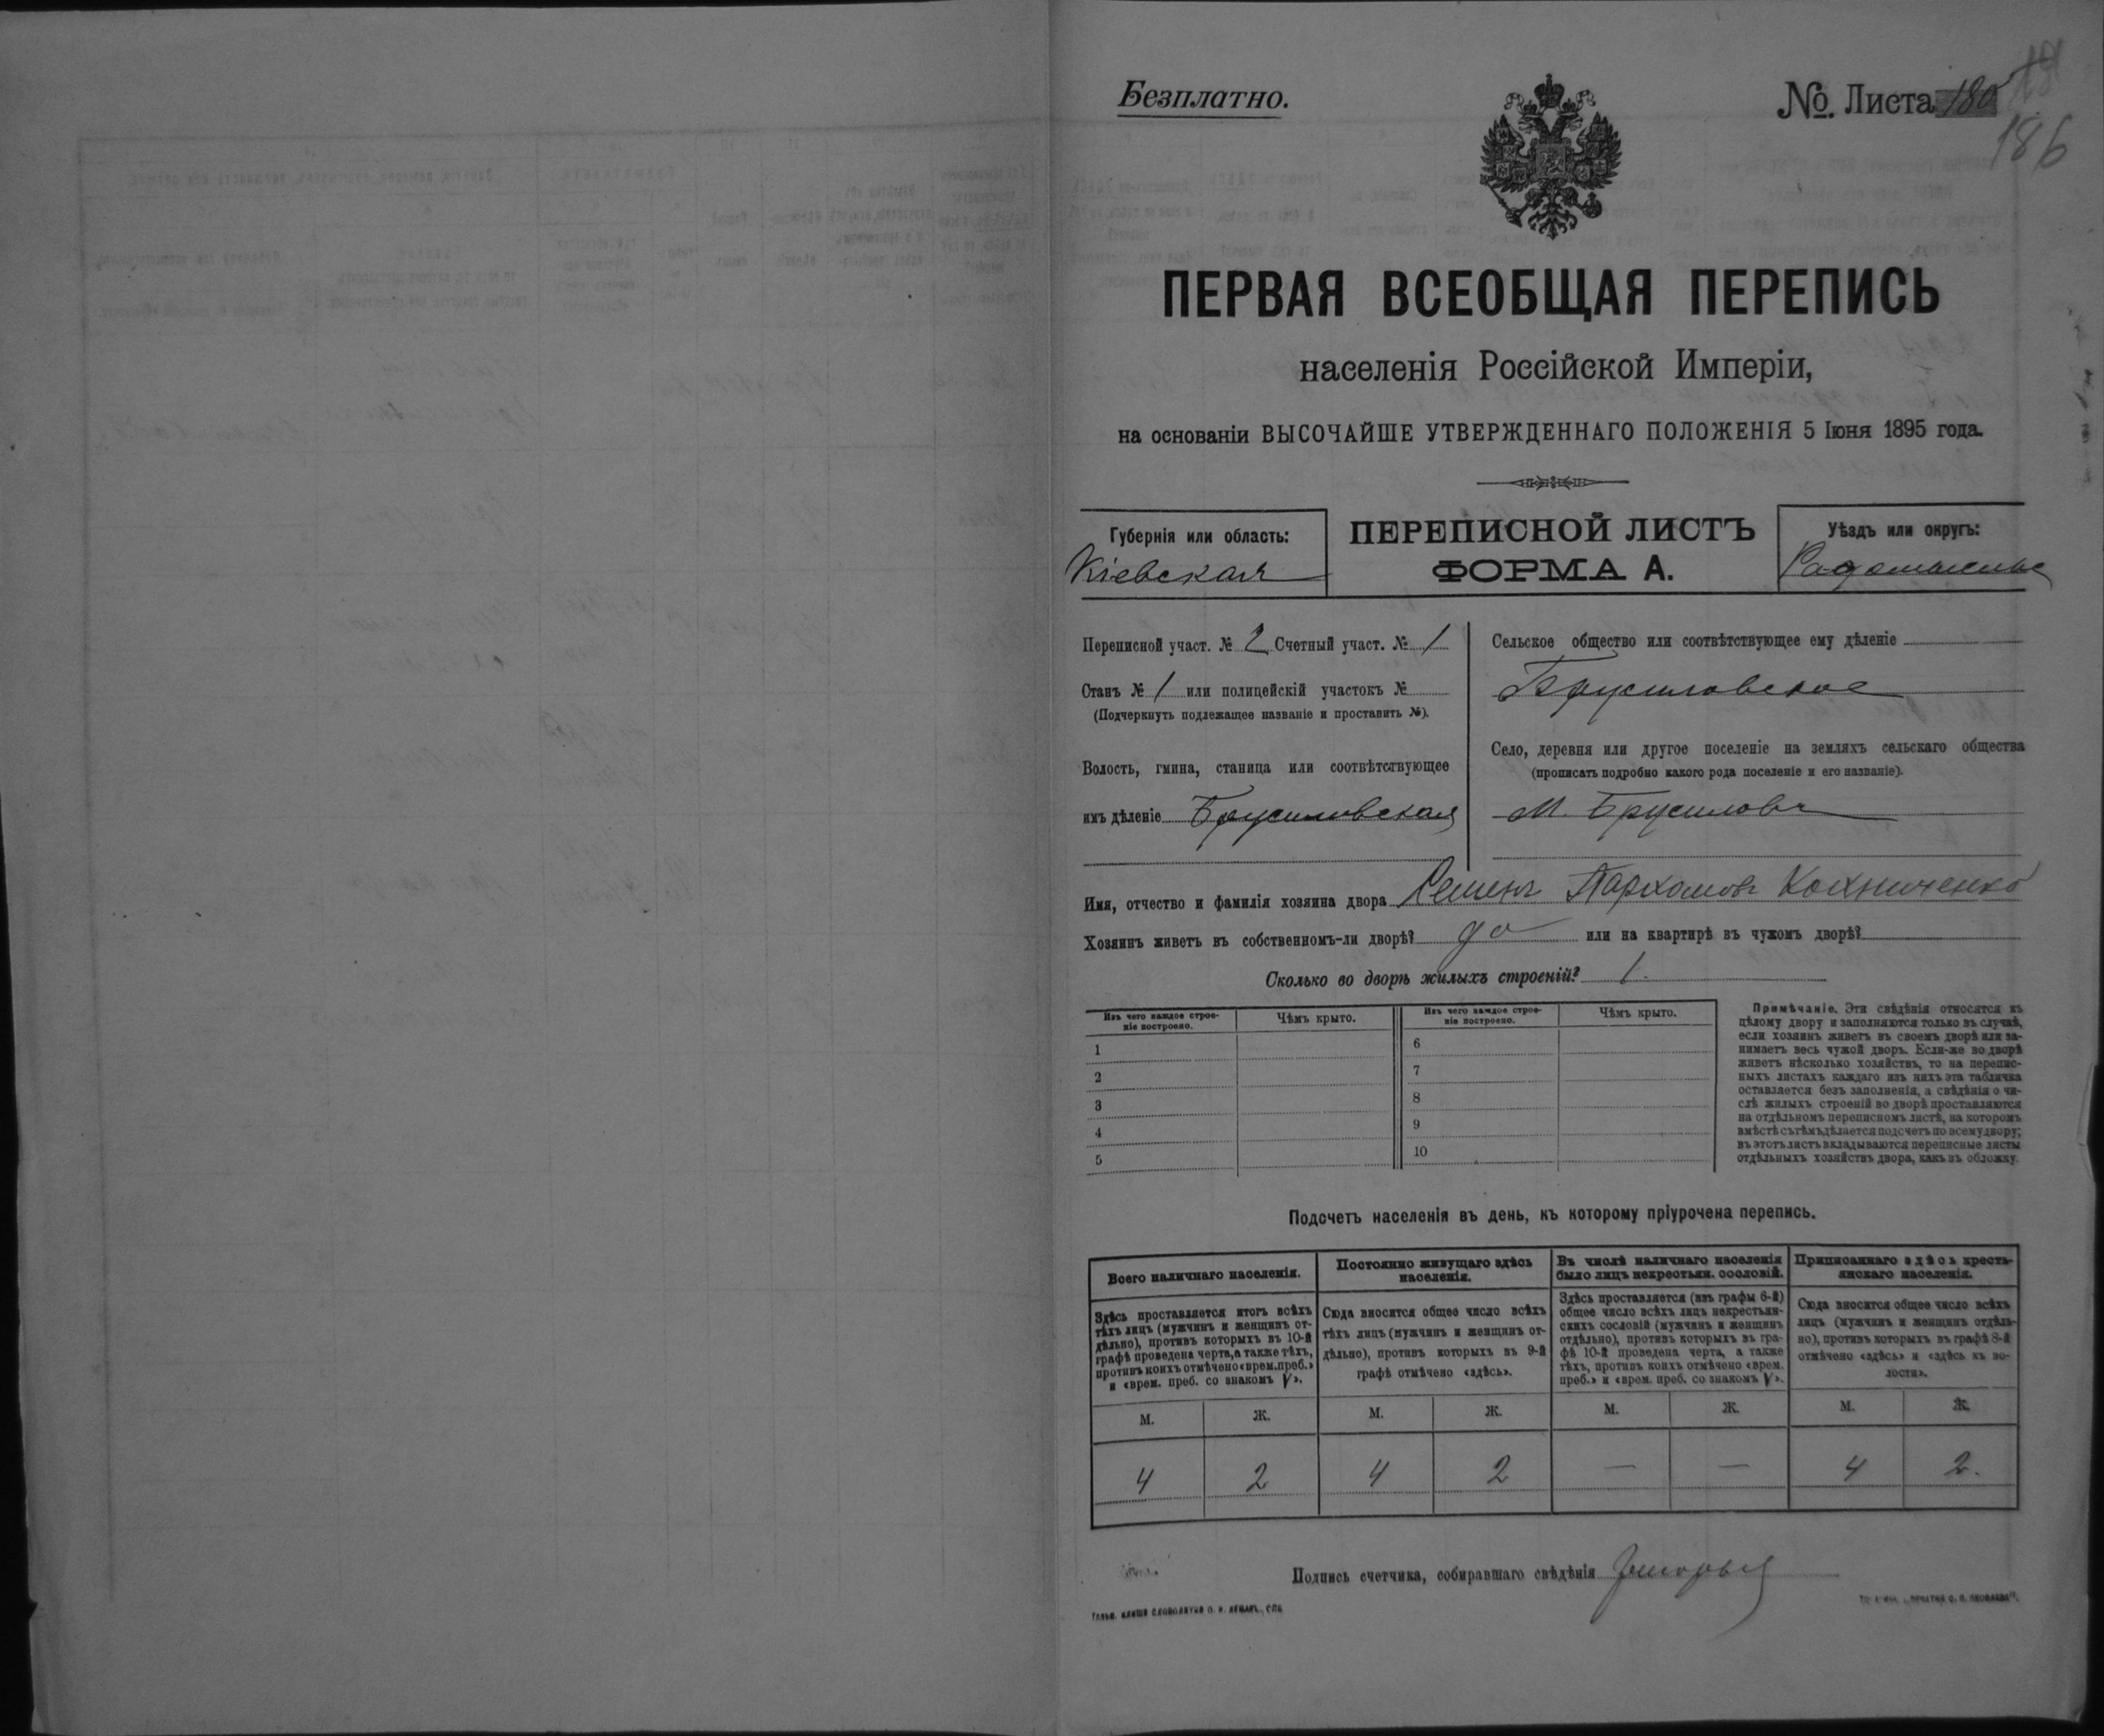 Безплатно.
№. Листа 180
186
ПЕРВАЯ ВСЕОБЩАЯ ПЕРЕПИСЬ
населенія Россійской Имперіи,
на основаніи ВЫСОЧАЙШЕ УТВЕРЖДЕННАГО ПОЛОЖЕНІЯ 5 Іюня 1895 года.
Губернія или область:
Кіевская
ПЕРЕПИСНОЙ ЛИСТЪ
ФОРМА А.
Уѣздъ или округъ:
Переписной участ. № 2 Счетный участ. № 1
Станъ № 1 или полицейскій участокъ №
(Подчеркнуть подлежащее названіе и проставить №).
Волость, гмина, станица или соотвѣтствующее
имъ дѣленіе Брусиловская
Сельское общество или соотвѣтствующее ему дѣленіе
Брусиловское
Село, деревня или другое поселеніе на земляхъ сельскаго общества
(прописать подробно какого рода поселеніе и его названіе).
М. Брусиловъ
Имя, отчество и фамилія хозяина двора Семенъ Пархомовъ Кохниченко
Хозяинъ живетъ въ собственномъ-ли дворѣ? да или на квартирѣ въ чужомъ дворѣ?
Сколько во дворѣ жилыхъ строеній? 1.
Изъ чего каждое строе-
ніе построено.
Чѣмъ крыто.
1
2
3
4
5
Изъ чего каждое строе-
ніе построено.
Чѣмъ крыто.
6
7
8
9
10
Примѣчаніе. Эти свѣдѣнія относятся къ
цѣлому двору и заполняются только въ случаѣ,
если хозяинъ живетъ въ своемъ дворѣ или за-
нимаетъ весь чужой дворъ. Если-же во дворѣ
живетъ нѣсколько хозяйствъ, то на перепис-
ныхъ листахъ каждаго изъ нихъ эта табличка
оставляется безъ заполненія, а свѣдѣнія о чи-
слѣ жилыхъ строеній во дворѣ проставляются
на отдѣльномъ переписномъ листѣ, на которомъ
вмѣстѣ съ тѣмъ дѣлается подсчетъ по всему двору;
въ этотъ листъ вкладываются переписные листы
отдѣльныхъ хозяйствъ двора, какъ въ обложку.
Подсчетъ населенія въ день, къ которому пріурочена перепись.
Всего наличнаго населенія.
Здѣсь проставляется итогъ всѣхъ
тѣхъ лицъ (мужчинъ и женщинъ от-
дѣльно), противъ которыхъ въ 10-й
графѣ проведена черта, а также тѣхъ,
противъ коихъ отмѣчено «врем. преб.»
и «врем. преб. со знакомъ V».
М. Ж.
4 2
Постоянно живущаго здѣсь
населенія.
Сюда вносится общее число всѣхъ
тѣхъ лицъ (мужчинъ и женщинъ от-
дѣльно), противъ которыхъ въ 9-й
графѣ отмѣчено «здѣсь».
М. Ж.
4 2
Въ числѣ наличнаго населенія
было лицъ некрестьян. сословій.
Здѣсь проставляется (изъ графы 6-й)
общее число всѣхъ лицъ некрестьян-
скихъ сословій (мужчинъ и женщинъ
отдѣльно), противъ которыхъ въ гра-
фѣ 10-й проведена черта, а также
тѣхъ, противъ коихъ отмѣчено «врем.
преб.» и «врем. преб. со знакомъ V».
М. Ж.
— —
Приписаннаго здѣсь кресть-
янскаго населенія.
Сюда вносится общее число всѣхъ
лицъ (мужчинъ и женщинъ отдѣль-
но), противъ которыхъ въ графѣ 8-й
отмѣчено «здѣсь» и «здѣсь къ во-
лости».
М. Ж.
4 2.
Подпись счетчика, собиравшаго свѣдѣнія